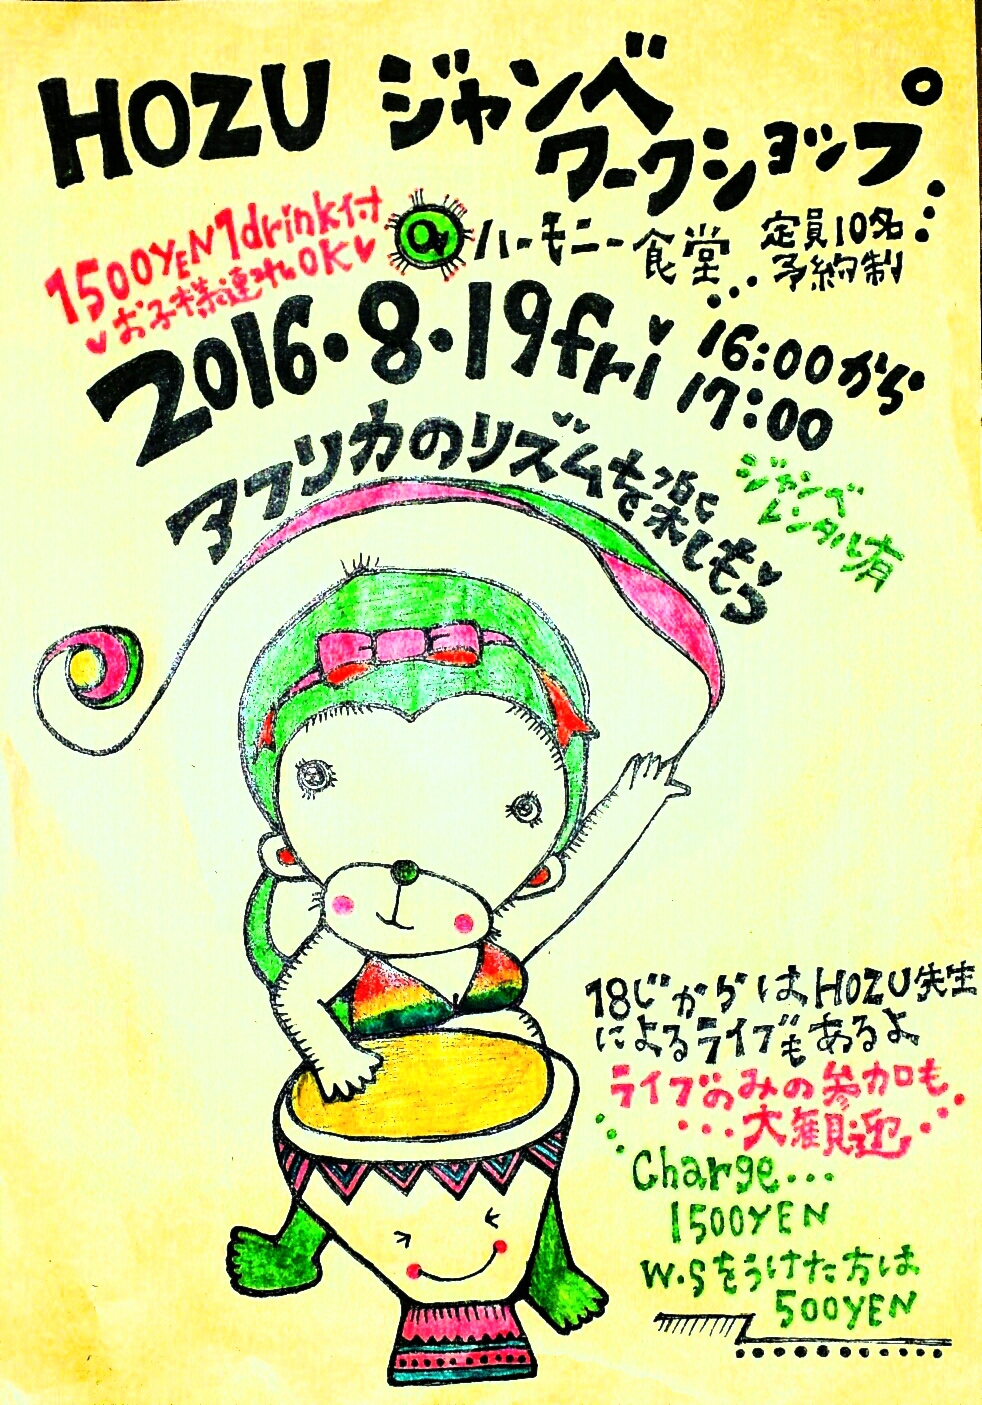 HOZU ジャンベ
ワークショップ
1500YEN 1drink付
お子様連れOK
ハーモニー食堂
定員10名
予約制
2016・8・19fri
16:00から
17:00
アフリカのリズムを楽しもう
ジャンベ
レンタル有
18じからはHOZU先生
によるライブもあるよ
ライブのみの参加も
・・・大歓迎
Charge...
1500YEN
W.Sをうけた方は
500YEN